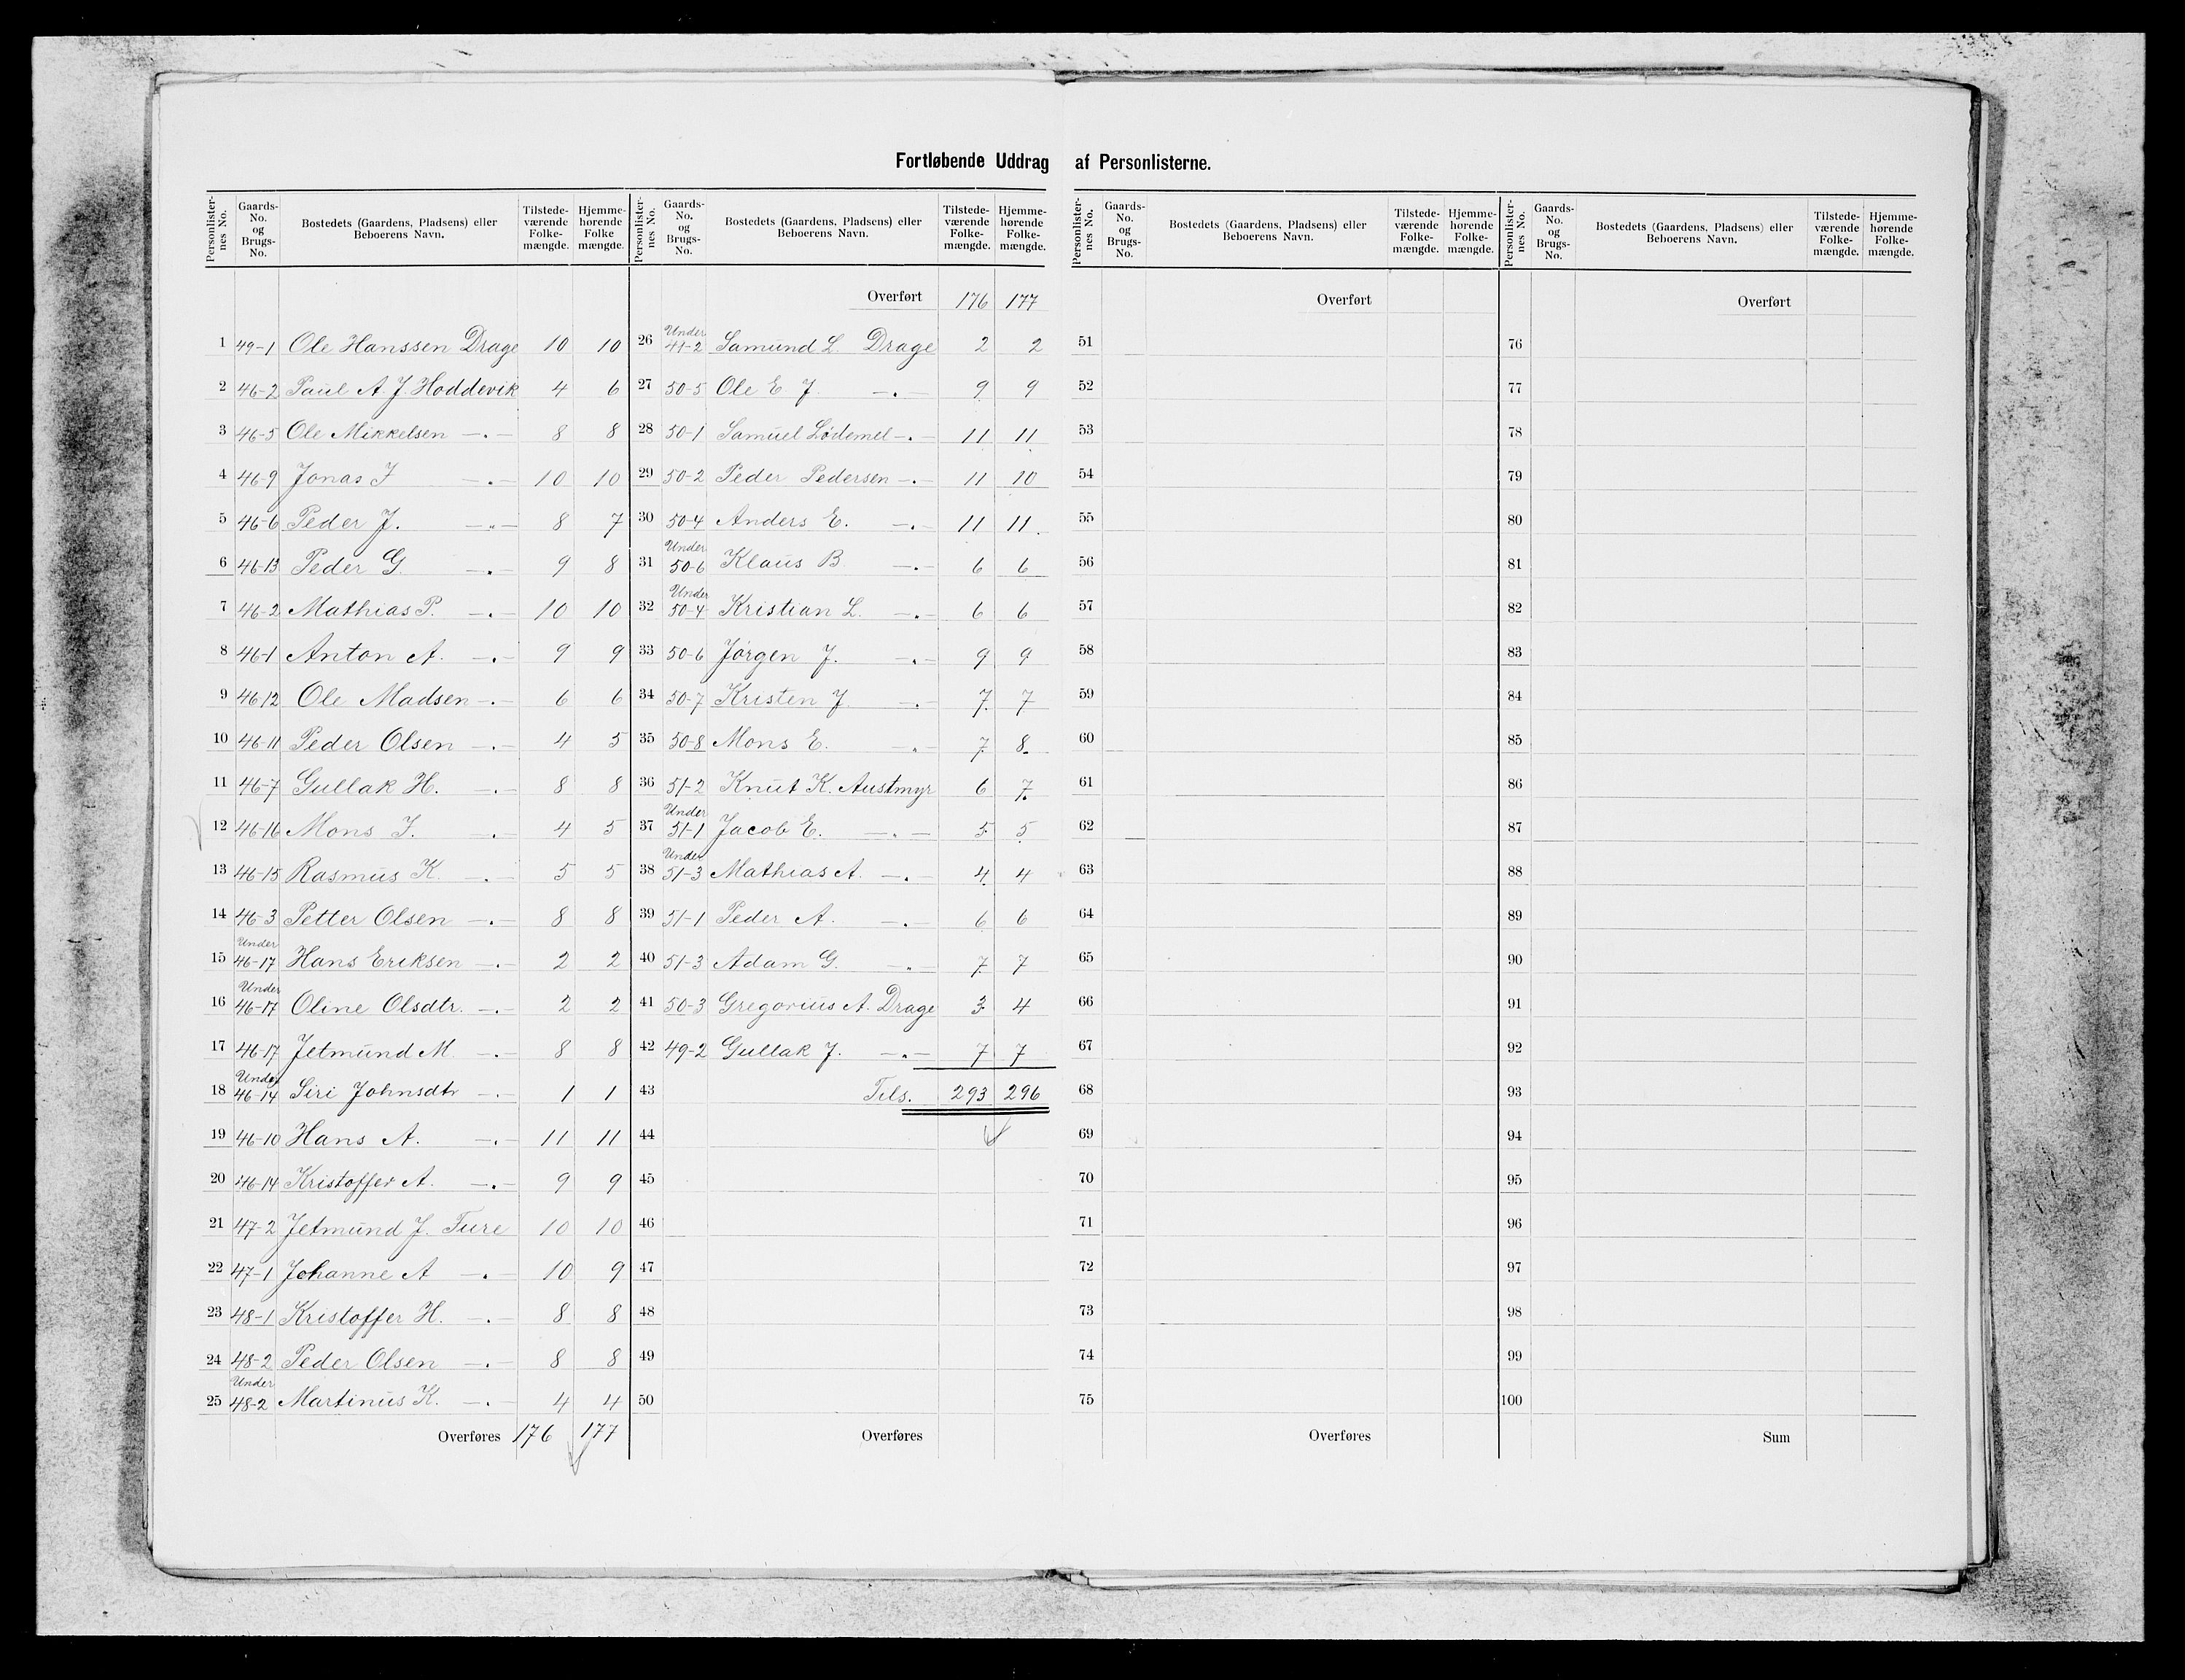 Fortløbende Uddrag af Personlisterne.
Personlister-nes No. Gaards-No. og Brugs-No. Bostedets (Gaardens, Pladsens) eller Beboerens Navn. Tilstede-værende Folke-mængde. Hjemme-hørende Folke mængde.
1 49-1 Ole Hanssen Drage 10 10
2 46-2 Paul A. J. Hoddevik 4 6
3 46-5 Ole Mikkelsen —〃— 8 8
4 46-9 Jonas J —〃— 10 10
5 46-6 Peder J. —〃— 8 7
6 46-13 Peder G. —〃— 9 8
7 46-2 Mathias P. —〃— 10 10
8 46-1 Anton A. —〃— 9 9
9 46-12 Ole Madsen —〃— 6 6
10 46-11 Peder Olsen —〃— 4 5
11 46-7 Gullak H. —〃— 8 8
12 46-16 Mons J. —〃— 4 5
13 46-15 Rasmus K. —〃— 5 5
14 46-3 Petter Olsen —〃— 8 8
15 Under 46-17 Hans Eriksen —〃— 2 2
16 Under 46-17 Oline Olsdtr. —〃— 2 2
17 46-17 Jetmund M. —〃— 8 8
18 Under 46-14 Siri Johnsdtr —〃— 1 1
19 46-10 Hans A. —〃— 11 11
20 46-14 Kristoffer A. —〃— 9 9
21 47-2 Jetmund J. Ture 10 10
22 47-1 Johanne A —〃— 10 9
23 48-1 Kristoffer H. —〃— 8 8
24 48-2 Peder Olsen —〃— 8 8
25 Under 48-2 Martinus K. —〃— 4 4
Overføres 176 177
Personlister-nes No. Gaards-No. og Brugs-No. Bostedets (Gaardens, Pladsens) eller Beboerens Navn. Tilstede-værende Folke-mængde. Hjemme-hørende Folke-mængde.
Overført 176 177
26 Under 49-2 Samund L. Drage 2 2
27 50-5 Ole E. J. —〃— 9 9
28 50-1 Samuel Lødemel —〃— 11 11
29 50-2 Peder Pedersen —〃— 11 10
30 50-4 Anders E. —〃— 11 11
31 Under 50-6 Klaus B. —〃— 6 6
32 Under 50-4 Kristian L. —〃— 6 6
33 50-6 Jørgen J. —〃— 9 9
34 50-7 Kristen J. —〃— 7 7
35 50-8 Mons E. 〃 7 8
36 51-2 Knut K. Austmyr 6 7
37 Under 51-1 Jacob E. —〃— 5 5
38 Under 51-3 Mathias A. —〃— 4 4
39 51-1 Peder A. —〃— 6 6
40 51-3 Adam G. —〃— 7 7
41 50-3 Gregorius A. Drage 3 4
42 49-2 Gullak J. —〃— 7 7
43 Tils. 293 296
44
45
46
47
48
49
50
Overføres
Personlister-nes No. Gaards-No. og Brugs-No. Bostedets (Gaardens, Pladsens) eller Beboerens Navn. Tilstede-værende Folke-mængde. Hjemme-hørende Folke-mængde.
Overført
51
52
53
54
55
56
57
58
59
60
61
62
63
64
65
66
67
68
69
70
71
72
73
74
75
Overføres
Personlister-nes No. Gaards-No. og Brugs-No. Bostedets (Gaardens, Pladsens) eller Beboerens Navn. Tilstede-værende Folke-mængde. Hjemme-hørende Folke-mængde.
Overført
76
77
78
79
80
81
82
83
84
85
86
87
88
89
90
91
92
93
94
95
96
97
98
99
100
Sum